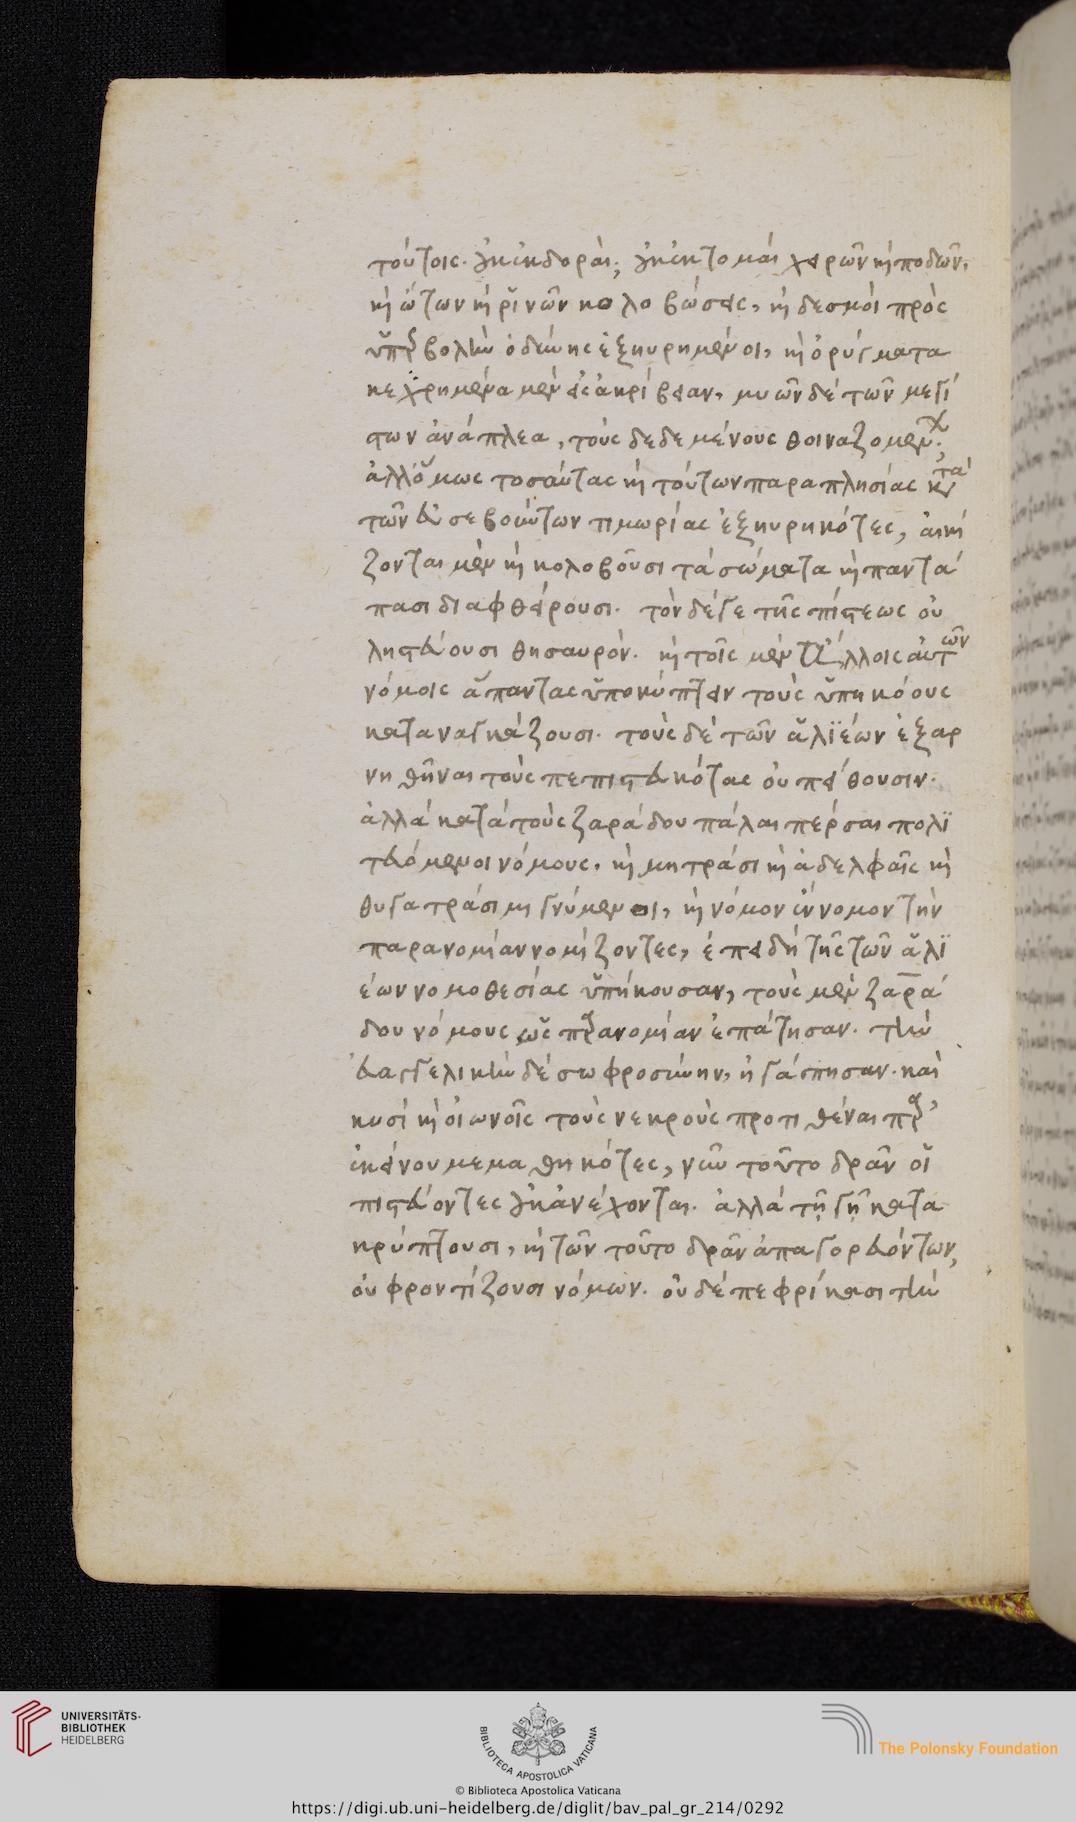 τούτοις· οὐκ ἐκδοραί; οὐκ ἐκτομαὶ χειρῶν καὶ ποδῶν,
καὶ ὤτων καὶ ῥινῶν κολοβώσεις, καὶ δεσμοὶ πρὸς
ὑπερβολὴν ὀδύνης ἐξηυρημένοι, καὶ ὀρύγματα
κεχρημένα μὲν εἰς ἀκρίβειαν, μυῶν δὲ τῶν μεγί
στων ἀνάπλεα, τοὺς δεδεμένους θοιναζομένων;
ἀλλ' ὅμως τοσαύτας καὶ τούτων παραπλησίας κατὰ
τῶν εὐσεβούντων τιμωρίας ἐξηυρηκότες, αἰκί
ζονται μὲν καὶ κολοβοῦσι τὰ σώματα καὶ παντά
πασι διαφθείρουσι· τὸν δέ γε τῆς πίστεως οὐ
ληστεύουσι θησαυρόν· καὶ τοῖς μὲν ἄλλοις αὐτῶν
νόμοις ἅπαντας ὑποκύπτειν τοὺς ὑπηκόους
καταναγκάζουσι· τοὺς δὲ τῶν ἁλιέων ἐξαρ
νηθῆναι τοὺς πεπιστευκότας οὐ πείθουσιν·
ἀλλὰ κατὰ τοὺς ζαράδου πάλαι πέρσαι πολι
τευόμενοι νόμους, καὶ μητράσι καὶ ἀδελφαῖς καὶ
θυγατράσι μιγνύμενοι, καὶ νόμον ἔννομον τὴν
παρανομίαν νομίζοντες, ἐπειδὴ τῆς τῶν ἁλι
έων νομοθεσίας ὑπήκουσαν, τοὺς μὲν ζαρά
δου νόμους ὡς παρανομίαν ἐπάτησαν· τὴν
εὐαγγελικὴν δὲ σωφροσύνην, ἠγάπησαν· καὶ
κυσὶ καὶ οἰωνοῖς τοὺς νεκροὺς προτιθέναι παρ'
ἐκείνου μεμαθηκότες, νῦν τοῦτο δρᾶν οἱ
πιστεύοντες οὐκ ἀνέχονται· ἀλλὰ τῇ γῇ κατα
κρύπτουσι, καὶ τῶν τοῦτο δρᾶν ἀπαγορευόντων,
οὐ φροντίζουσι νόμων· οὐδὲ πεφρίκασι τὴν
UNIVERSITÄTS-
BIBLIOTHEK
HEIDELBERG
BIBLIOTECA APOSTOLICA VATICANA
The Polonsky Foundation
© Biblioteca Apostolica Vaticana
https://digi.ub.uni-heidelberg.de/diglit/bav_pal_gr_214/0292